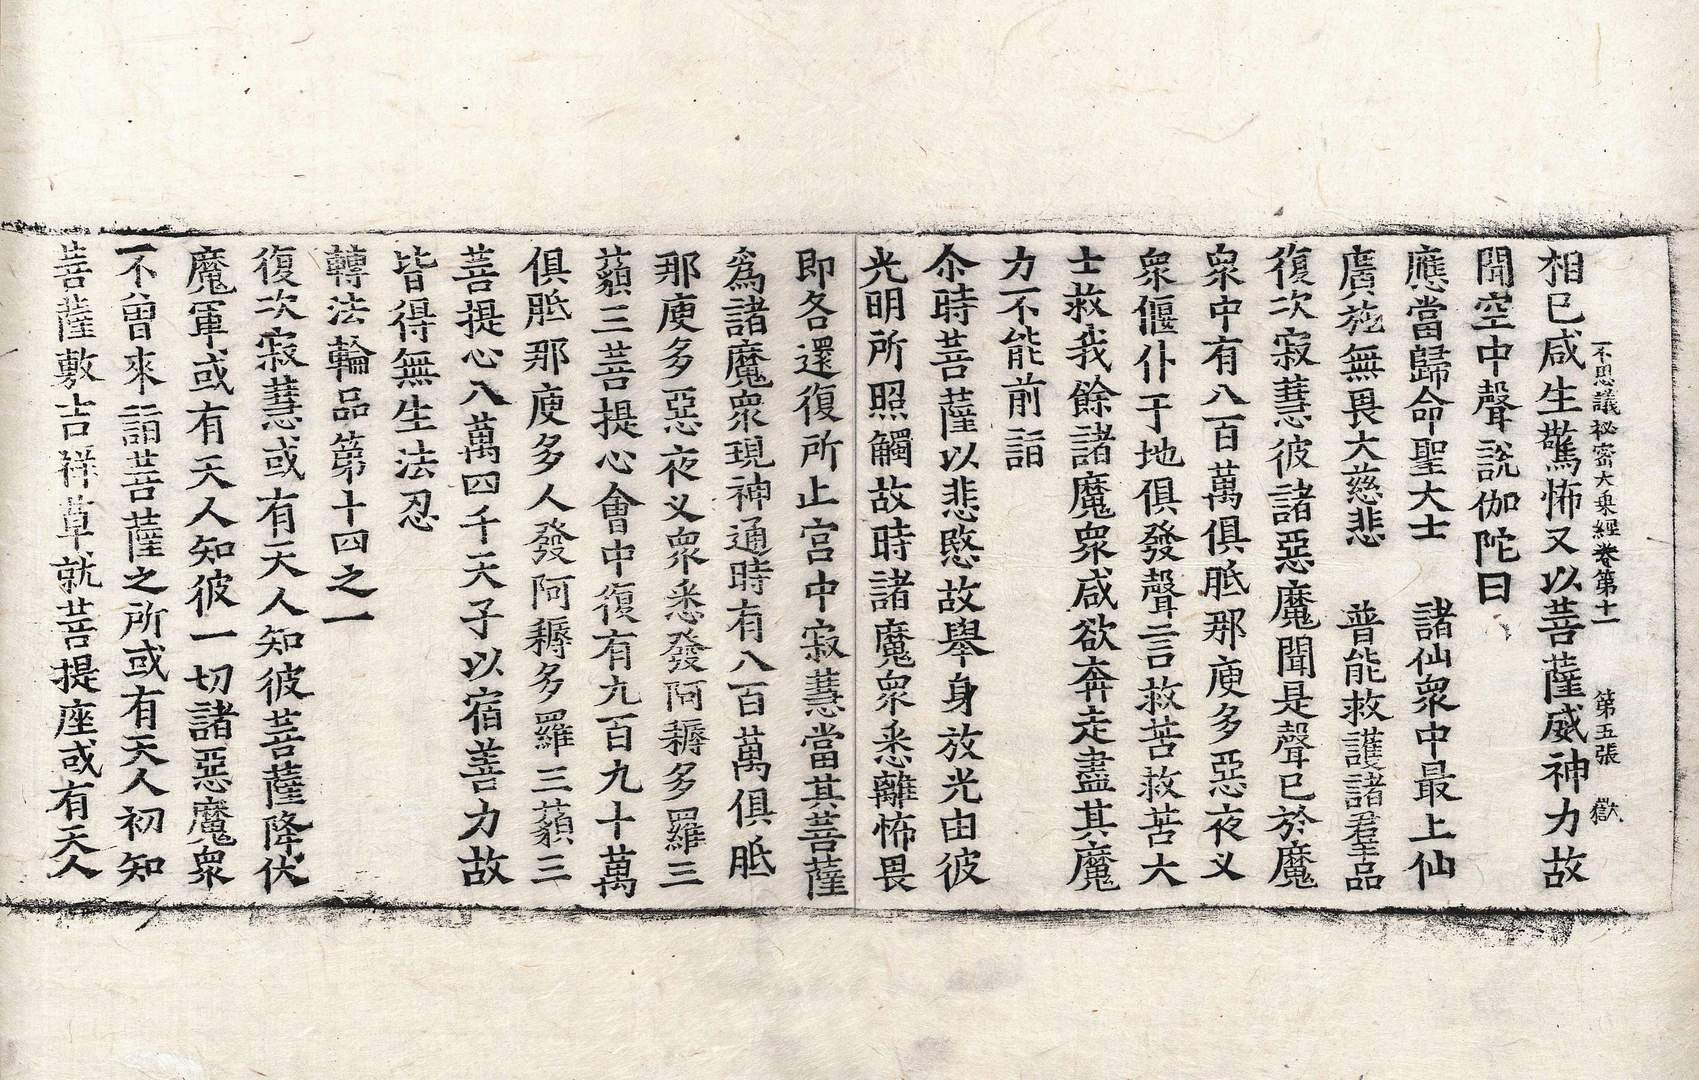 不思議祕密大乘經卷第十一　第五張　獄
相已咸生驚怖又以菩薩威神力故
聞空中聲說伽陀曰
應當歸命聖大士　諸仙衆中最上仙
廣施無畏大慈悲　普能救護諸羣品
復次寂慧彼諸惡魔聞是聲已於魔
衆中有八百萬俱胝那庾多惡夜叉
衆偃仆于地俱發聲言救苦救苦大
士救我餘諸魔衆咸欲奔走盡其魔
力不能前詣
尒時菩薩以悲愍故舉身放光由彼
光明所照觸故時諸魔衆悉離怖畏
即各還復所止宮中寂慧當其菩薩
爲諸魔衆現神通時有八百萬俱胝
那庾多惡夜叉衆悉發阿耨多羅三
藐三菩提心會中復有九百九十萬
俱胝那庾多人發阿耨多羅三藐三
菩提心八萬四千天子以宿善力故
皆得無生法忍
轉法輪品第十四之一
復次寂慧或有天人知彼菩薩降伏
魔軍或有天人知彼一切諸惡魔衆
不曾來詣菩薩之所或有天人初知
菩薩敷吉祥草就菩提座或有天人